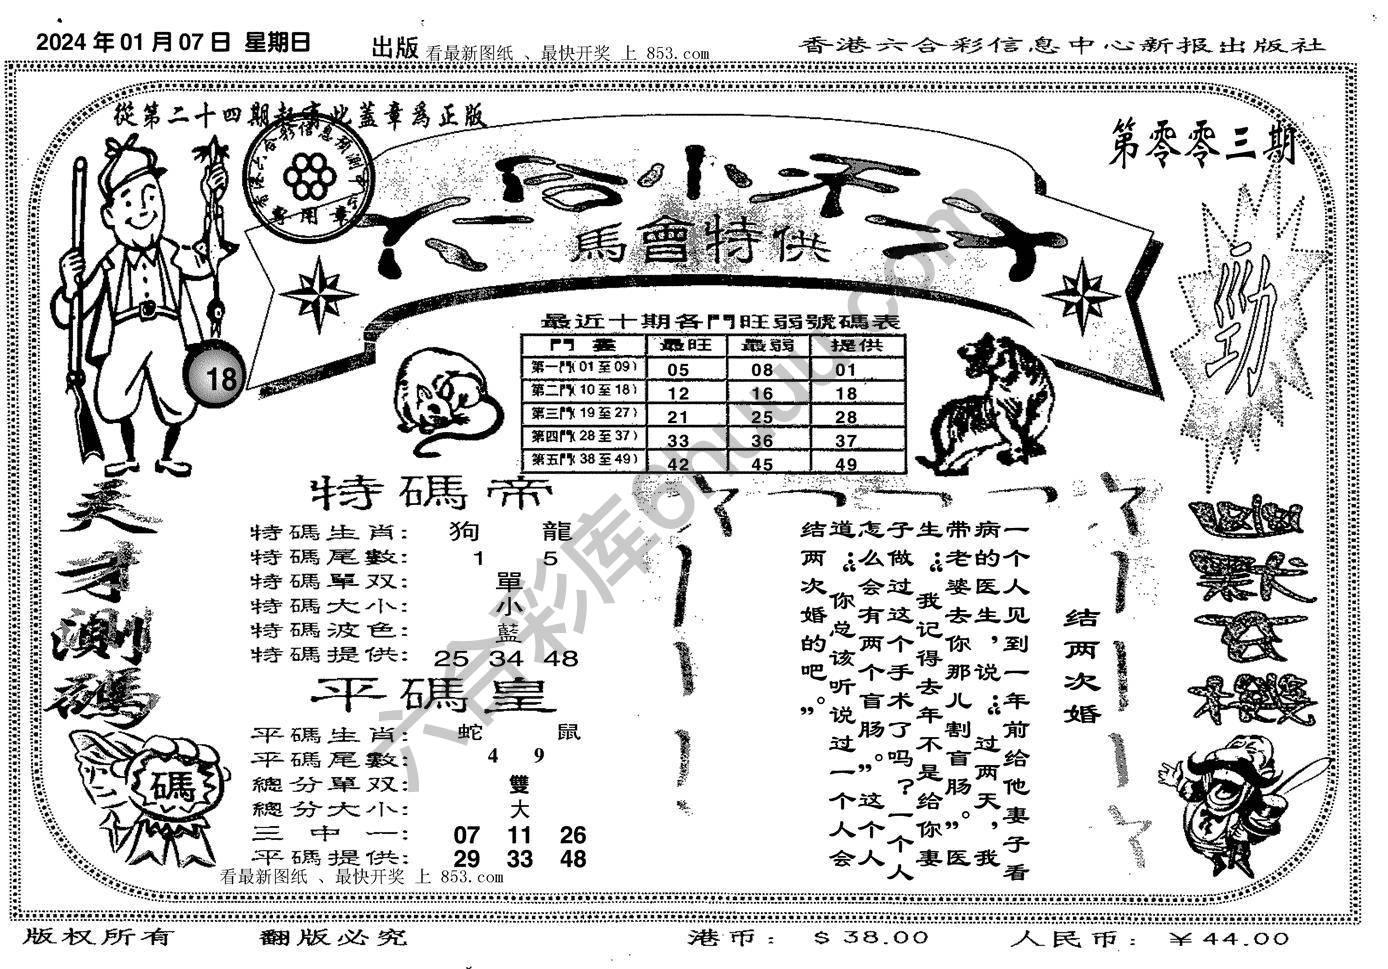 2024 年 01 月 07 日 星期日
出版 看最新图纸 、最快开奖 上 853.com
香港六合彩信息中心新报出版社
從第二十四期起享此蓋章爲正版
第零零三期
六合小天才
馬會特供
勁
18
最近十期各門旺弱號碼表
門 最旺 最弱 提供
第一門(01至09) 05 08 01
第二門(10至18) 12 16 18
第三門(19至27) 21 25 28
第四門(28至37) 33 36 37
第五門(38至49) 42 45 49
天才測碼
碼
特碼帝
特碼生肖: 狗 龍
特碼尾數: 1 5
特碼單双: 單
特碼大小: 小
特碼波色: 藍
特碼提供: 25 34 48
平碼皇
平碼生肖: 蛇 鼠
平碼尾數: 4 9
總分單双: 雙
總分大小: 大
三中一: 07 11 26
平碼提供: 29 33 48
看最新图纸 、最快开奖 上 853.com
结两次婚
一个人见到一年前给他妻子看
病的医生，说：“过两天，我
带老婆去你那儿割盲肠。”医
生：“我记得去年不是给你妻
子做过这个手术了吗？一个人
怎么会有两个盲肠。”这个人
道：“你总该听说过一个人会
结两次婚的吧。”
六合彩库6huu.com
版权所有 翻版必究 港币：＄38.00 人民币：￥44.00